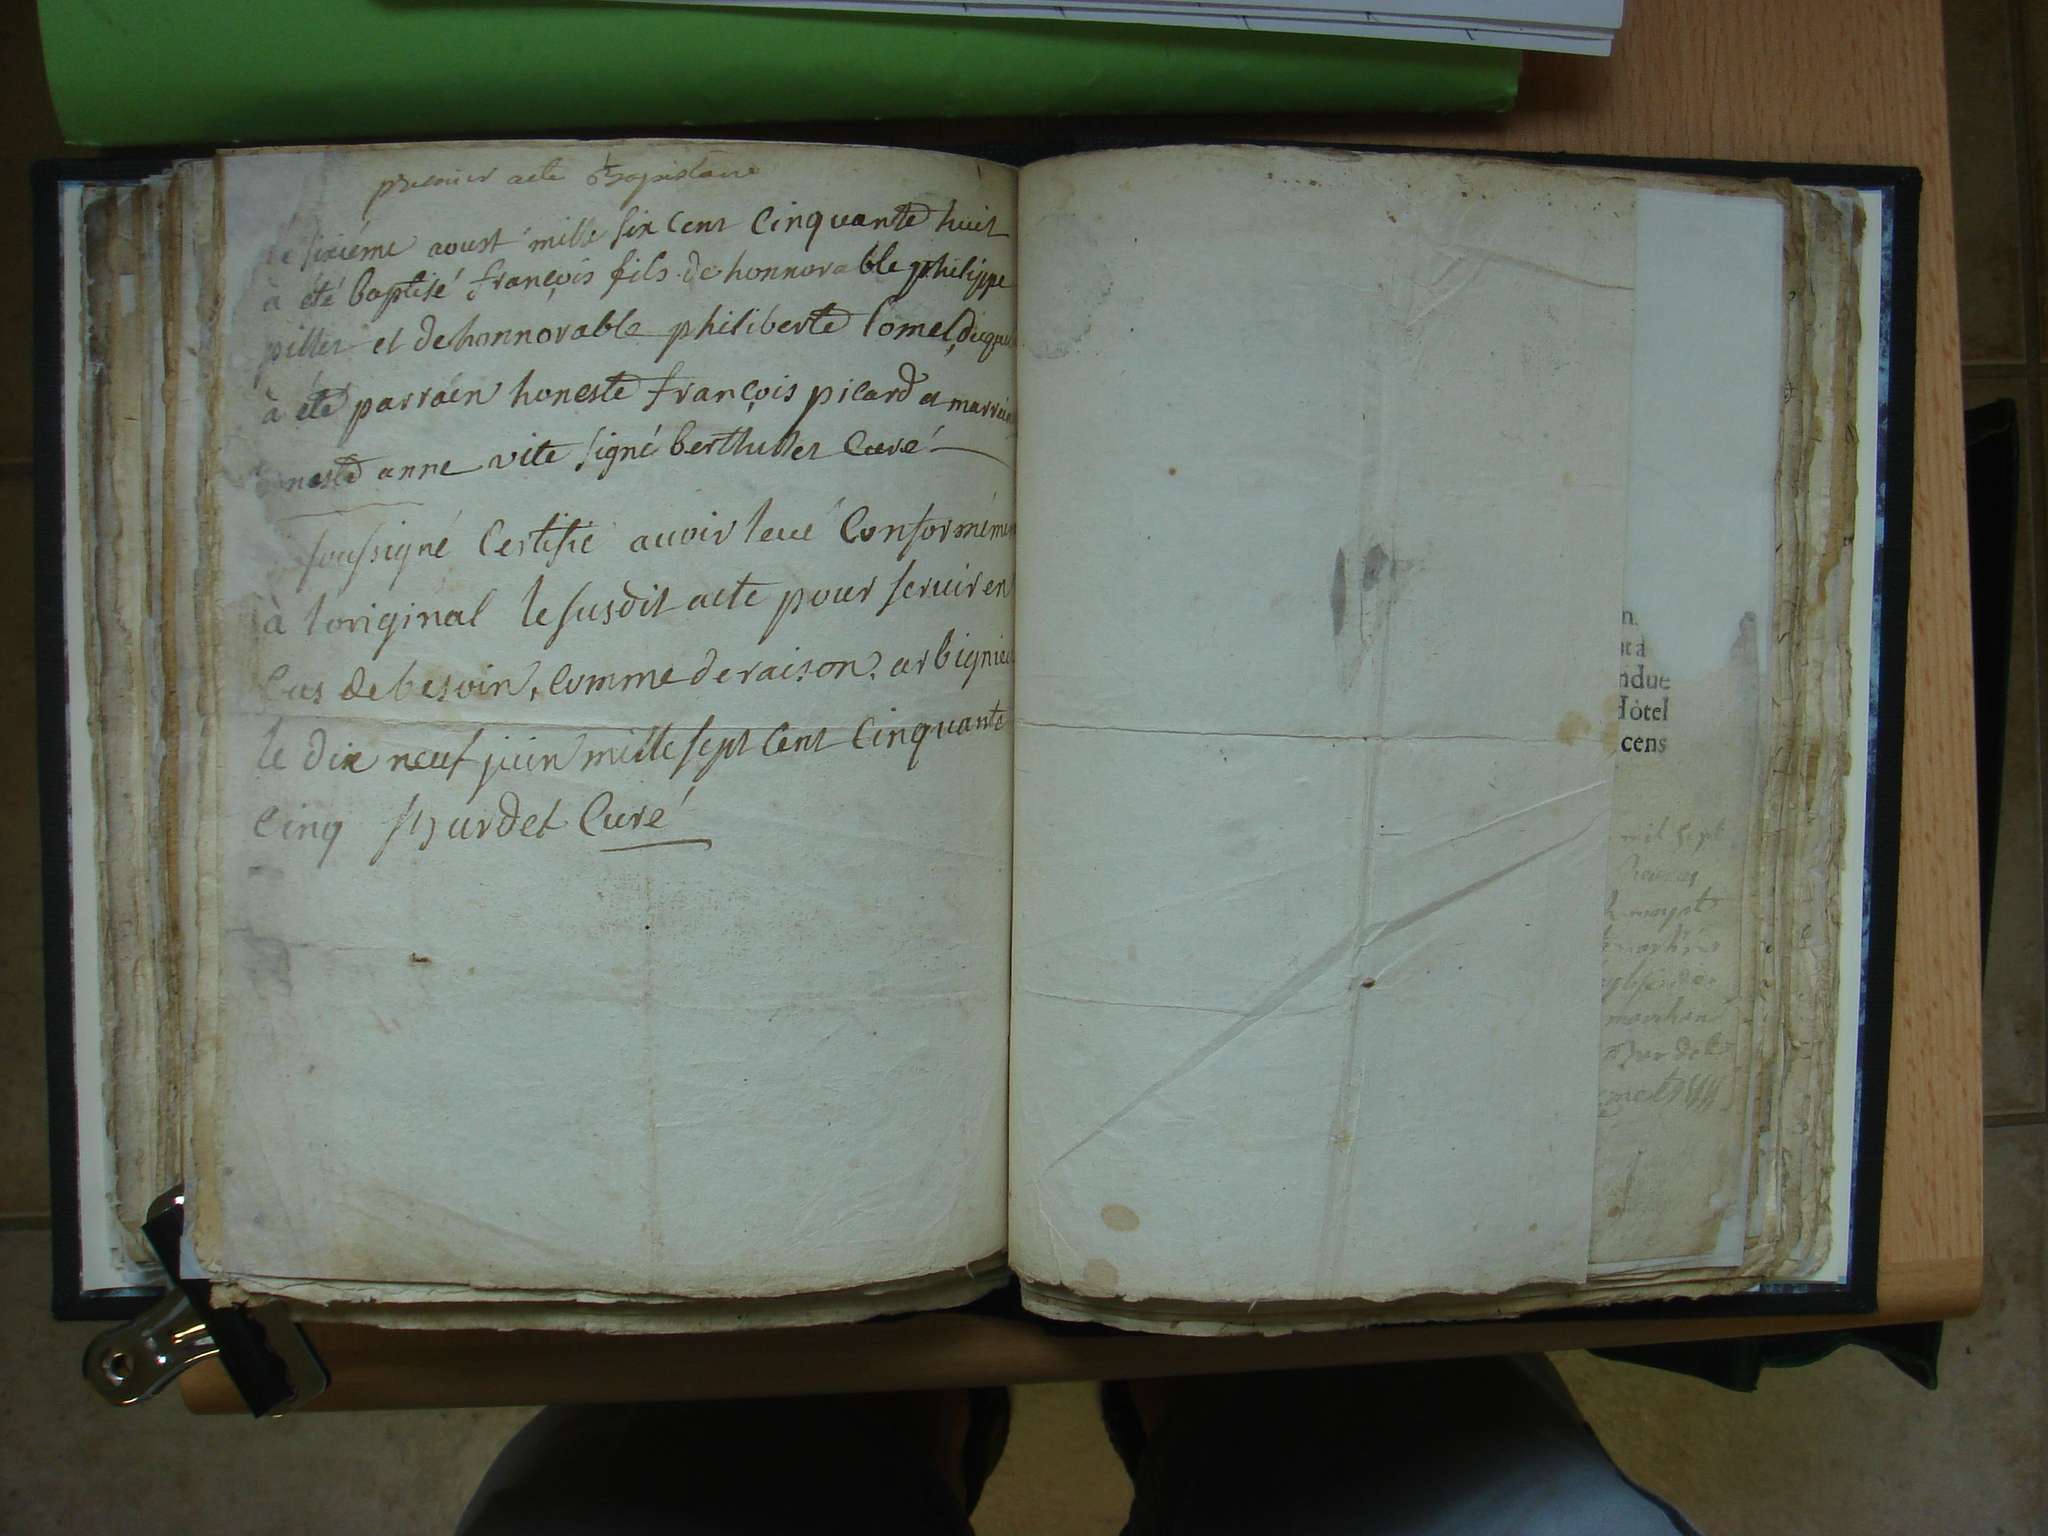 premier acte baptistaire
le sixiéme aoust mille six cent cinquante huit
à été baptisé françois fils de honnorable philippe
pittet et de honnorable philiberte Comes, duquel
à été parrain honeste françois picard et marraine
honeste anne vite signé berthollet curé
soussigné certifie avoir levé conformément
à l'original le susdit acte pour servir en
cas de besoin, comme de raison, arbignieu
le dix neuf juin mille sept cent cinquante
cinq Burdet curé
ndue
cens
mil sept